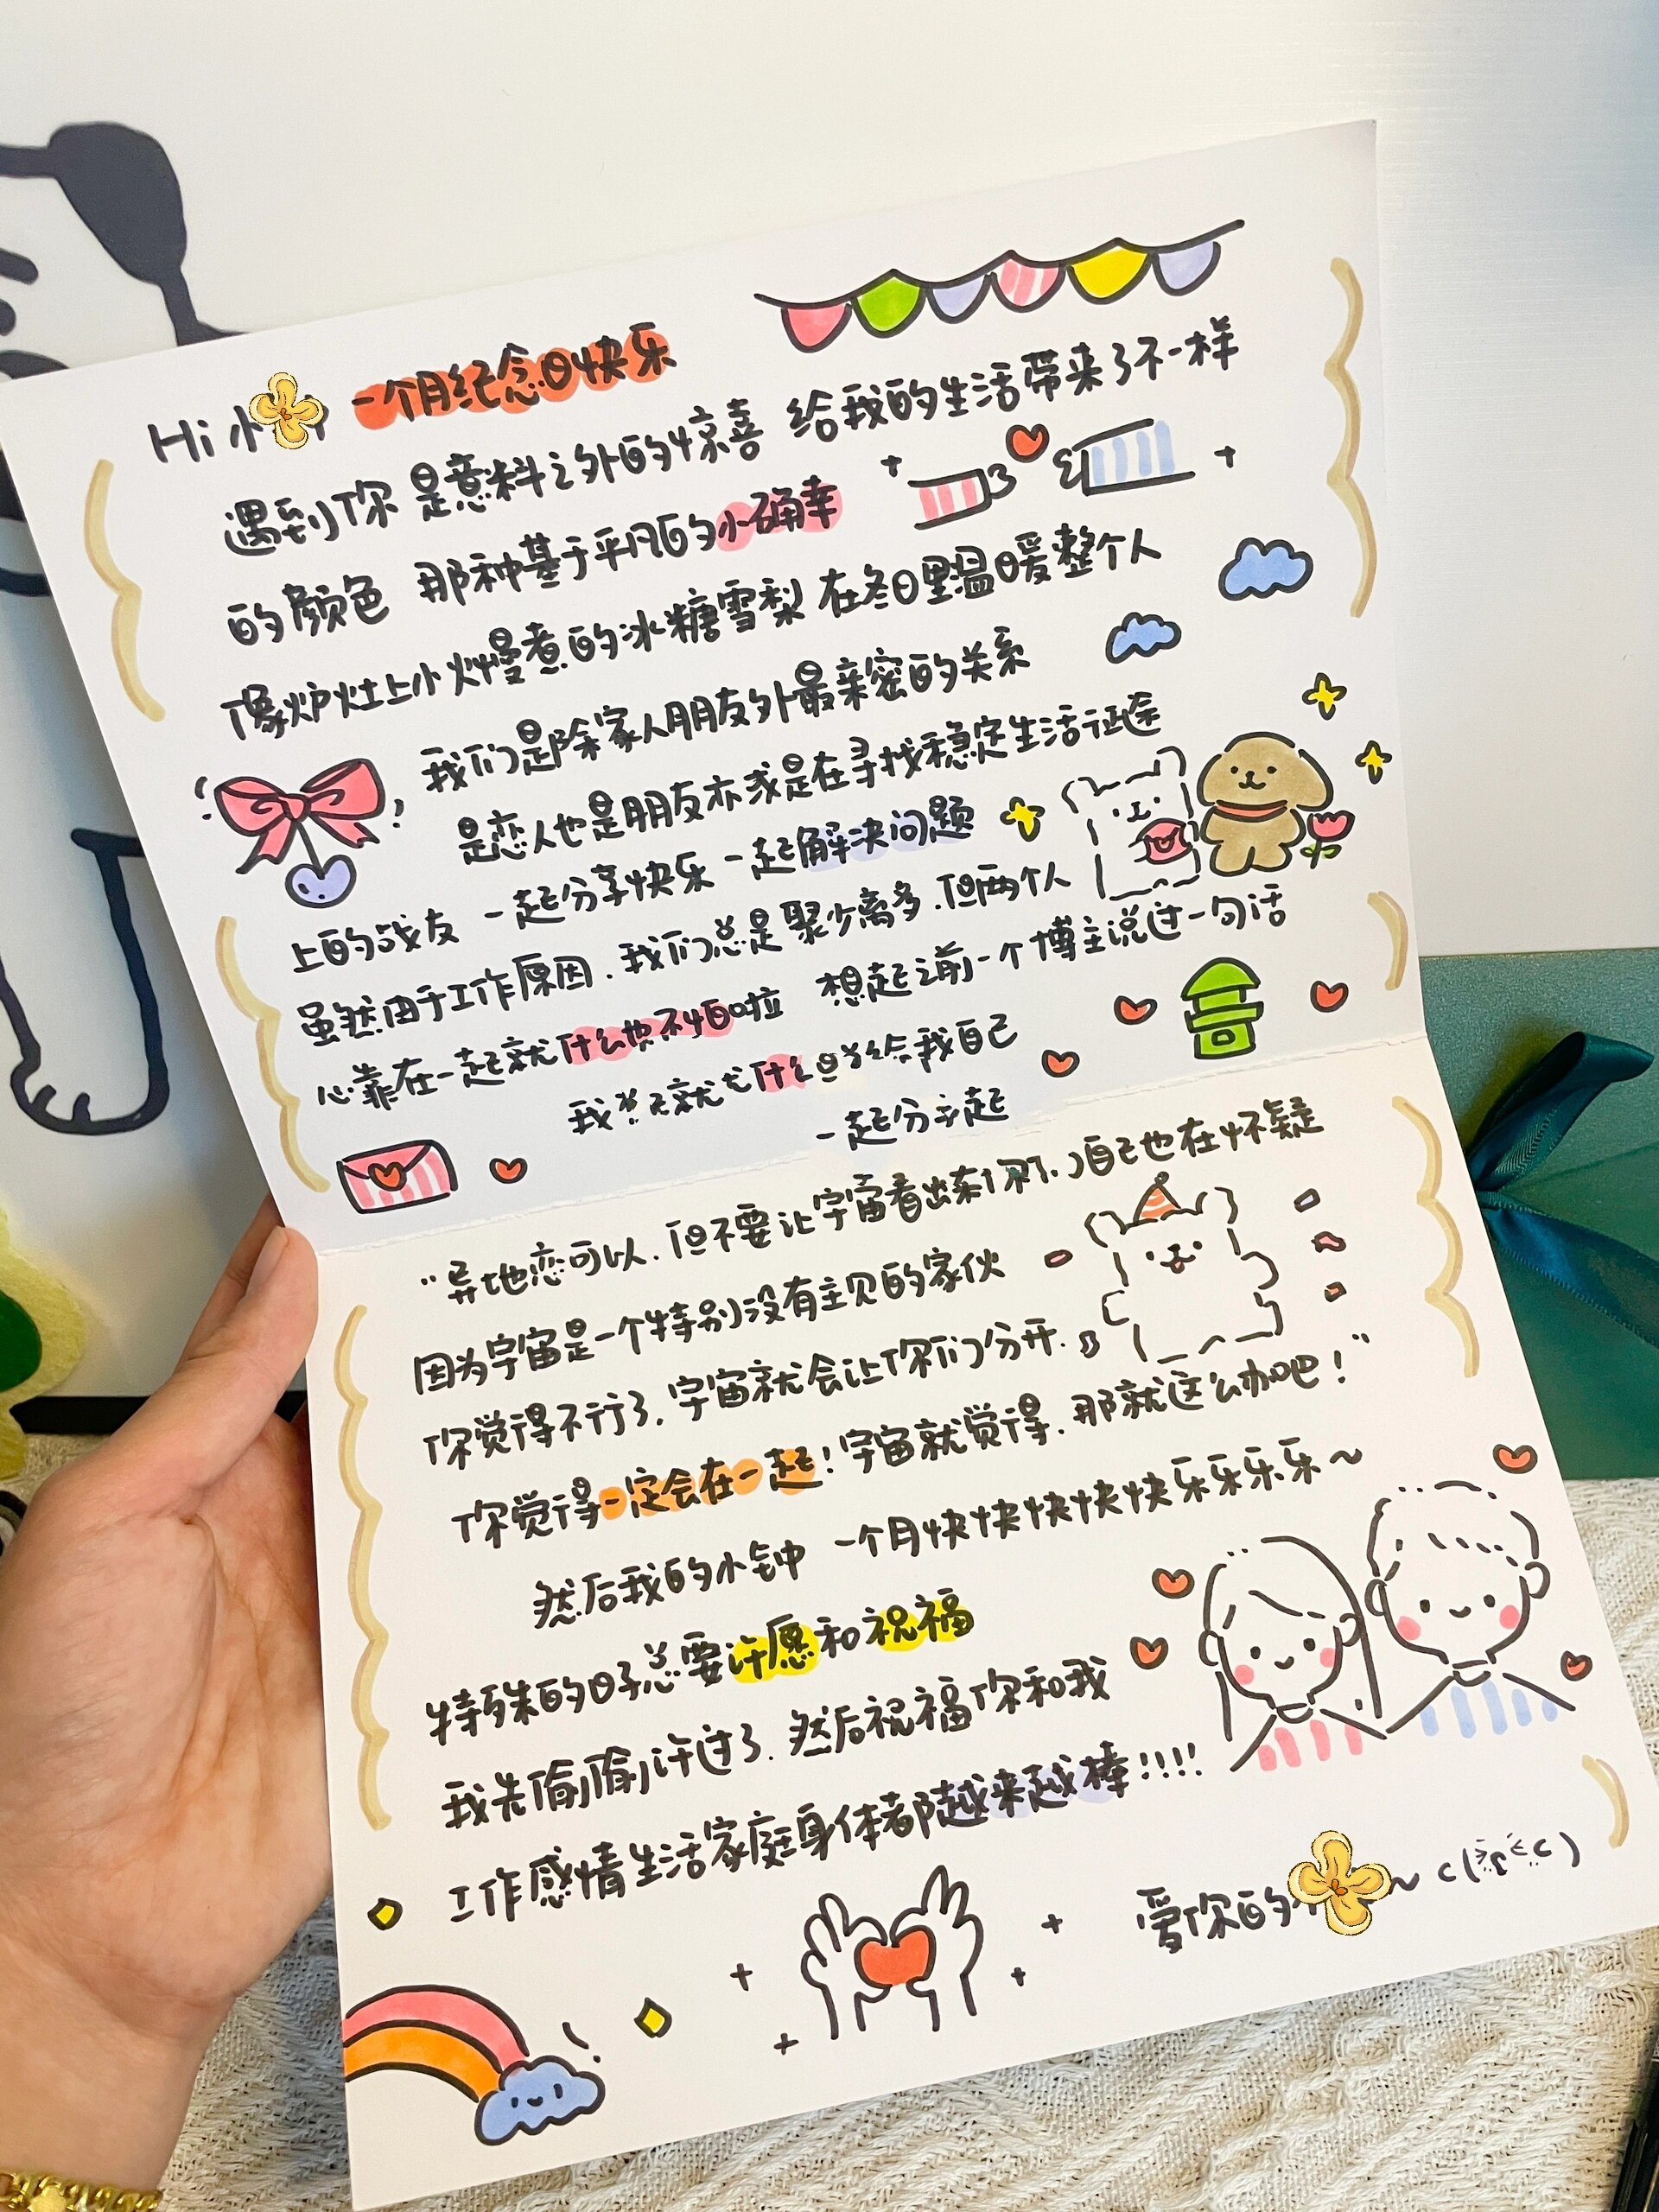 Hi 小 一个月纪念日快乐
遇到你 是意料之外的惊喜 给我的生活带来了不一样
的颜色 那种基于平凡的小确幸
像炉灶上小火慢煮的冰糖雪梨 在冬日里温暖整个人
我们是除家人朋友外最亲密的关系
是恋人也是朋友亦或是在寻找稳定生活征途
上的战友 一起分享快乐 一起解决问题
虽然由于工作原因.我们总是聚少离多.但两个人
心靠在一起就什么也不怕啦 想起之前一个博主说过一句话
我 就 什么 给我自己
一起分 起
"异地恋可以.但不要让宇宙看出来你 自己也在怀疑
因为宇宙是一个特别没有主见的家伙
你觉得不行了.宇宙就会让你们分开.
你觉得一定会在一起!宇宙就觉得.那就这么办吧!"
然后我的小钟 一个月快快快快快乐乐乐乐~
特殊的日子总要许愿和祝福
我先偷偷许过了.然后祝福你和我
工作感情生活家庭身体都越来越棒!!!!
爱你的 ~